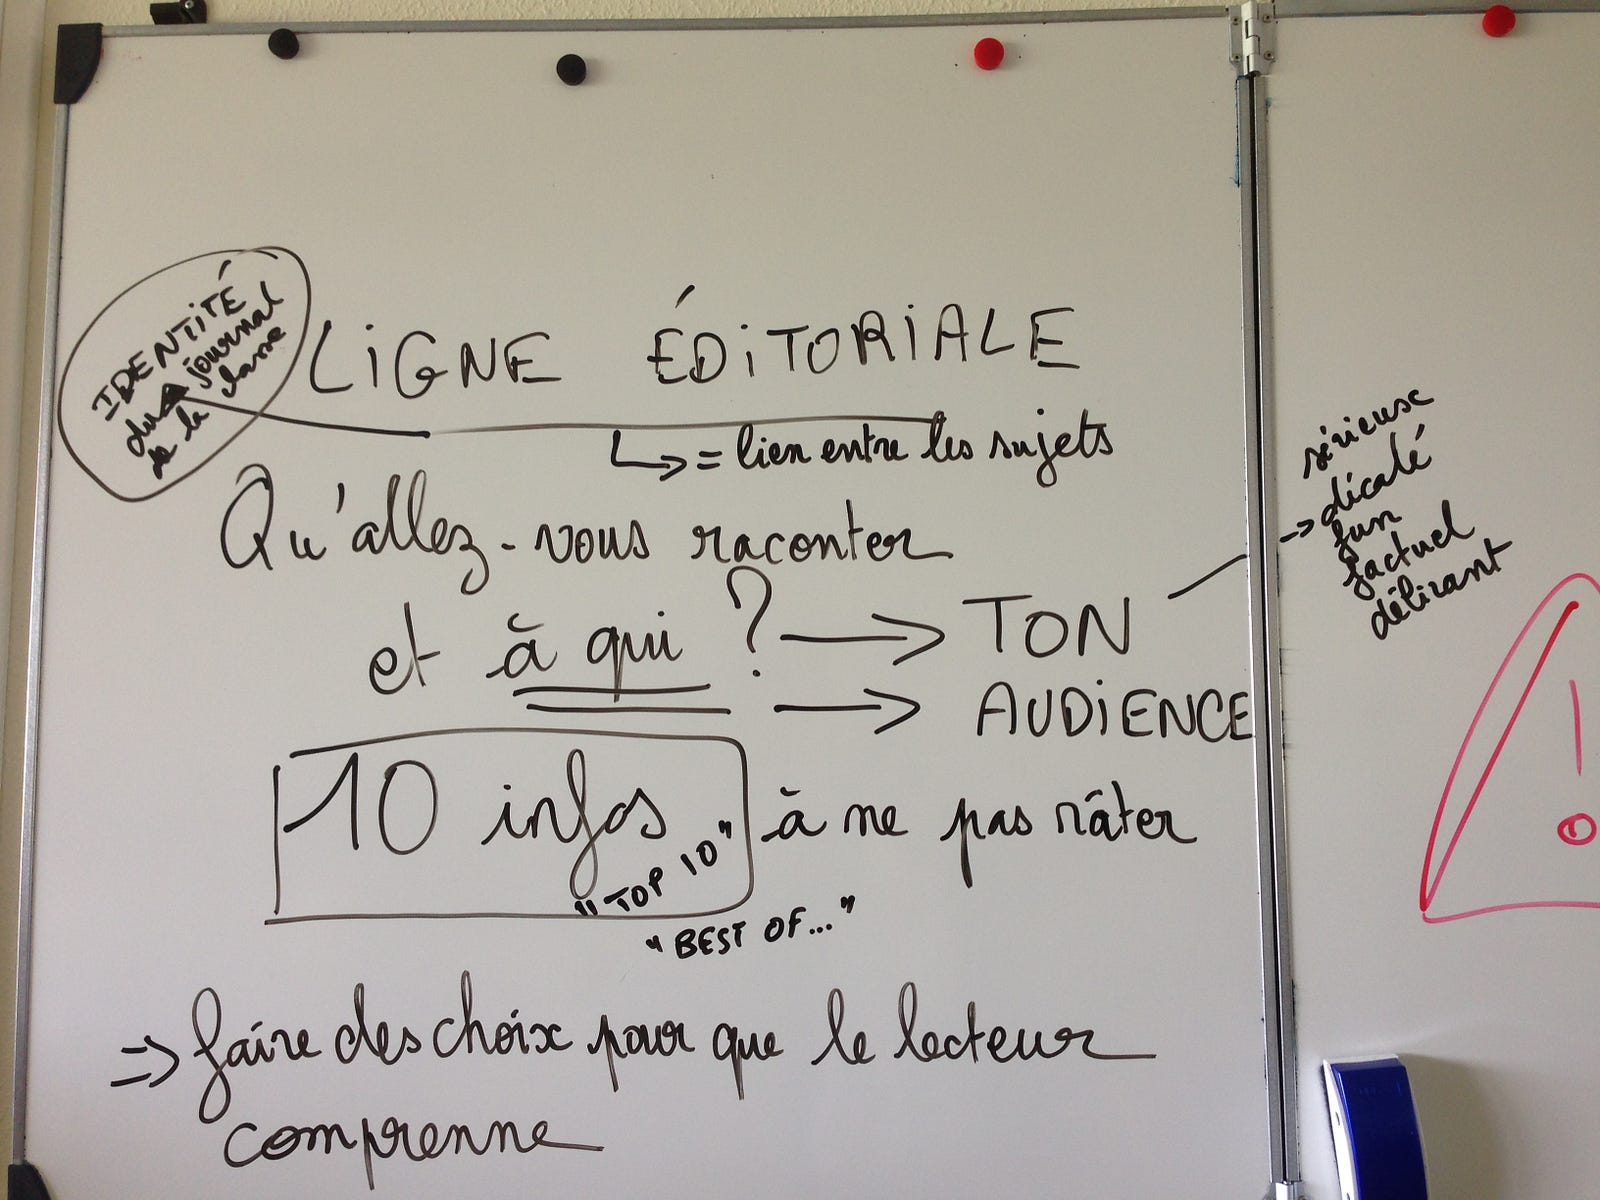 IDENTITÉ
du journal
de la classe
LIGNE ÉDITORIALE
↳ = lien entre les sujets
Qu'allez-vous raconter
et à qui ? → TON
→ sérieuse
décalé
fun
factuel
délirant
→ AUDIENCE
10 infos à ne pas râter
"TOP 10"
"BEST OF..."
⇒ faire des choix pour que le lecteur
comprenne
!